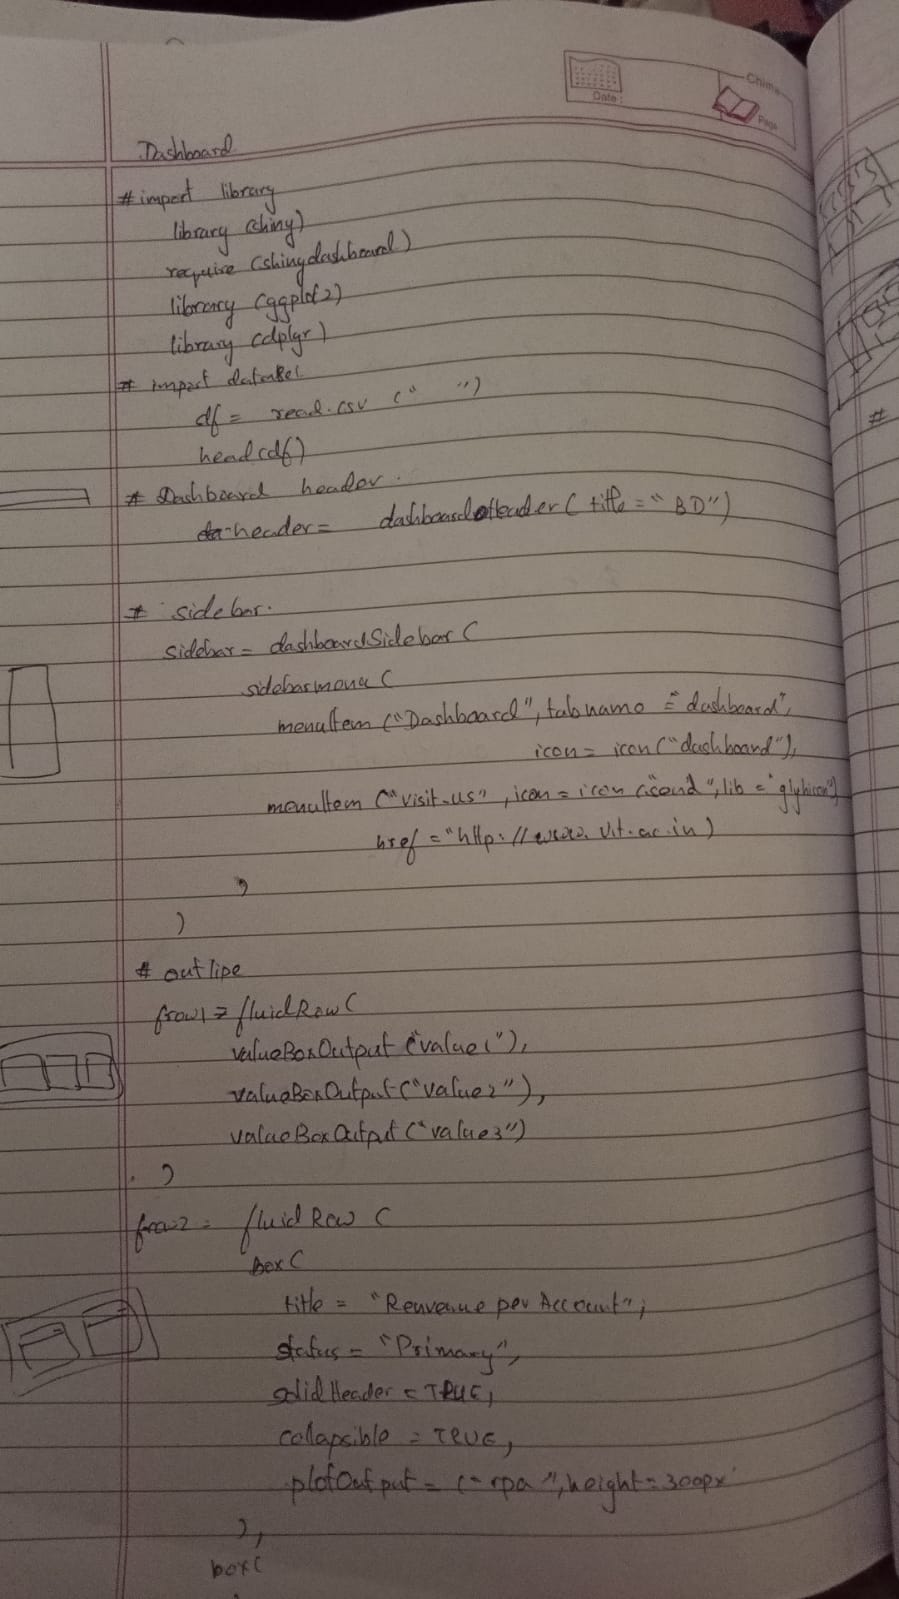 Chima
Date:
Page
Dashboard
# import library
library (shiny)
require (shinydashboard)
library (ggplot2)
library (dplyr)
# import dataset
df = read.csv (" ")
head (df)
# Dashboard header.
header = dashboardHeader ( title = "BD")
# sidebar.
sidebar = dashboardSidebar (
sidebarmenu (
menuItem ("Dashboard", tabname = "dashboard",
icon = icon ("dashboard"),
menuItem ("visit-us", icon = icon ("send", lib = "glyhicon")
href = "http://www.vit.ac.in)
)
)
# outlipe
frow1 = fluidRow (
valueBoxOutput ("value1"),
valueBoxOutput ("value2"),
valueBoxOutput ("value3")
)
frow2 = fluid Row (
box (
title = "Reuvenue per Account",
status = "Primary",
solid Header = TRUE,
collapsible = TRUE,
plotOutput = ("rpa", height = 300px
),
box (
#